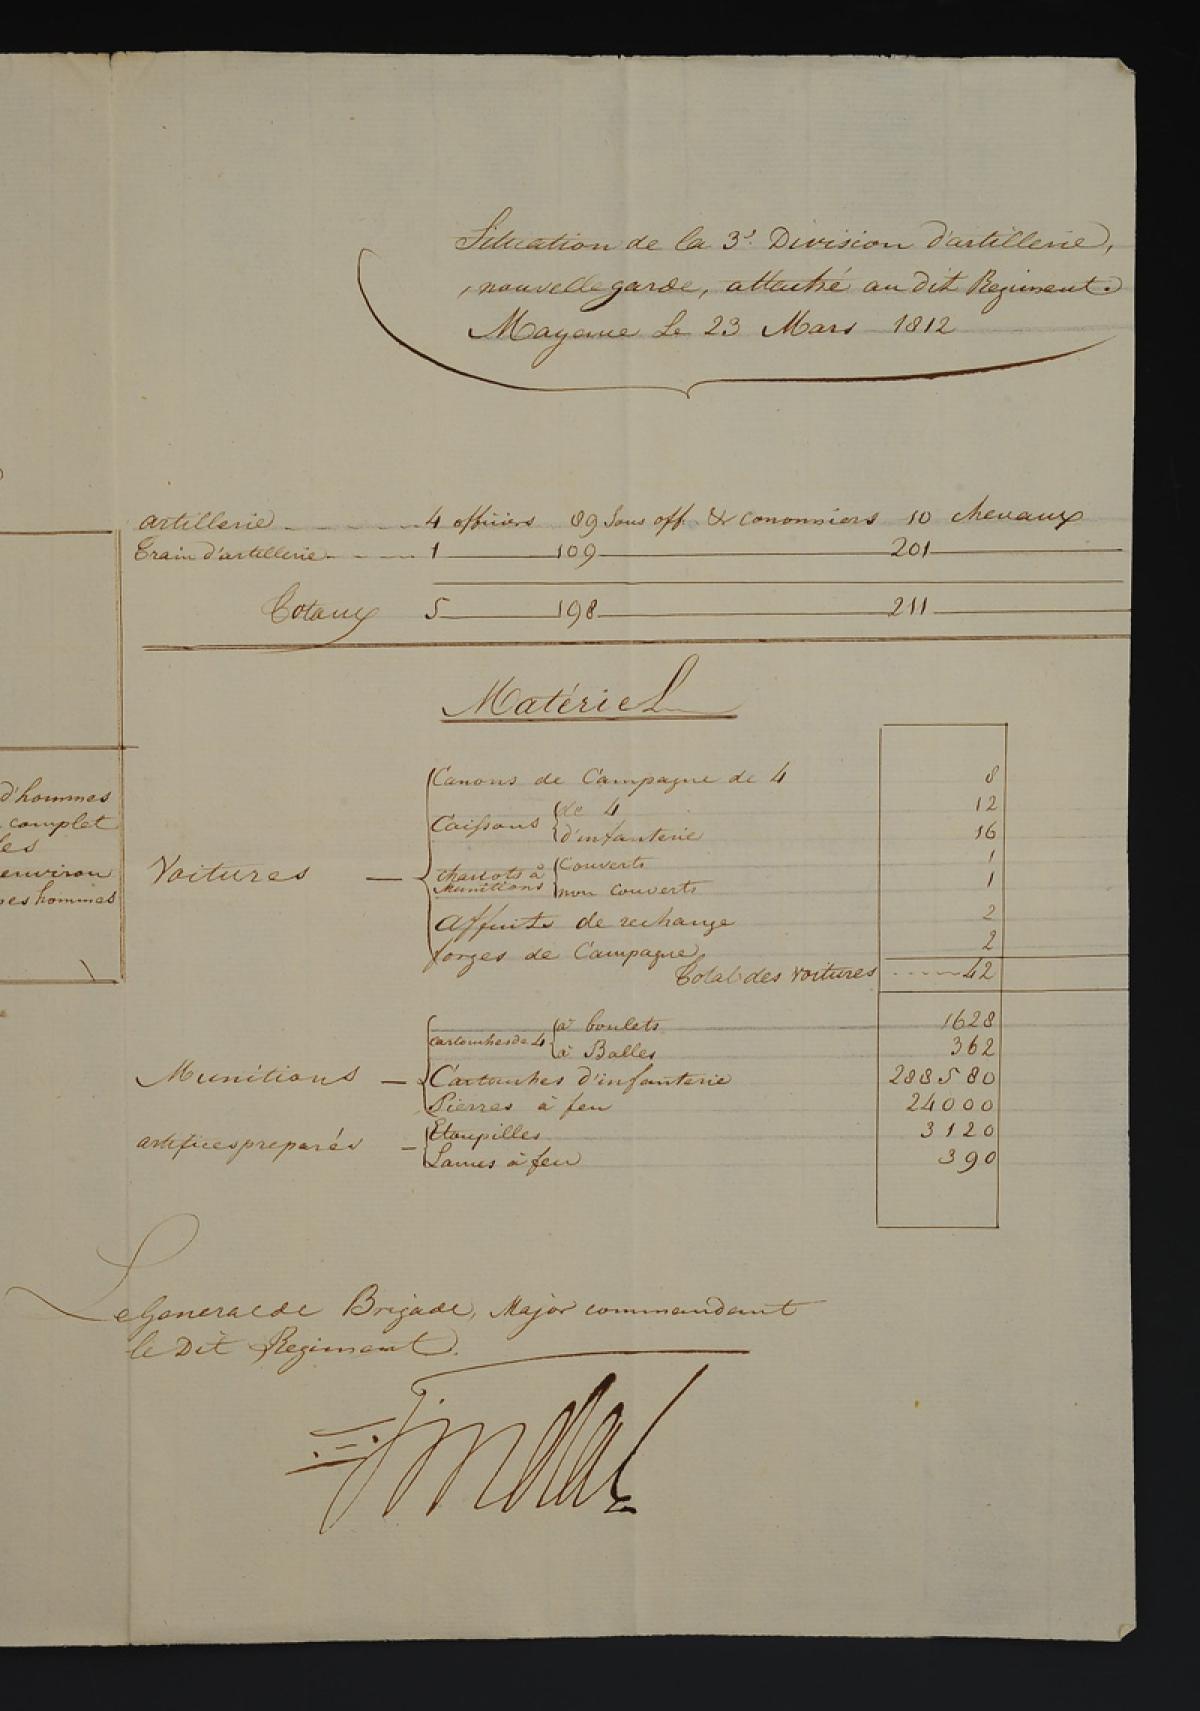 Situation de la 3e. Division d'artillerie,
nouvelle garde, attaché au dit Regiment.
Mayence Le 23 Mars 1812
artillerie 4 officiers 89 Sous off. & cononniers 10 chevaux
Train d'artillerie 1 109 201
Totaux 5 198 211
Matériel
d'hommes
complet
les
environ
hommes
Voitures
Canons de Campagne de 4 8
Caissons de 4 12
d'infanterie 16
chariots à munitions couverts 1
non couverts 1
affuits de rechange 2
forges de Campagne 2
Total des voitures 42
Munitions
cartouches de 4 à boulets 1628
à Balles 362
Cartouches d'infanterie 288580
Pierres à feu 24000
artifices preparés
Etoupilles 3120
Lames à feu 390
Le General de Brigade, Major commandant
le Dit Regiment.